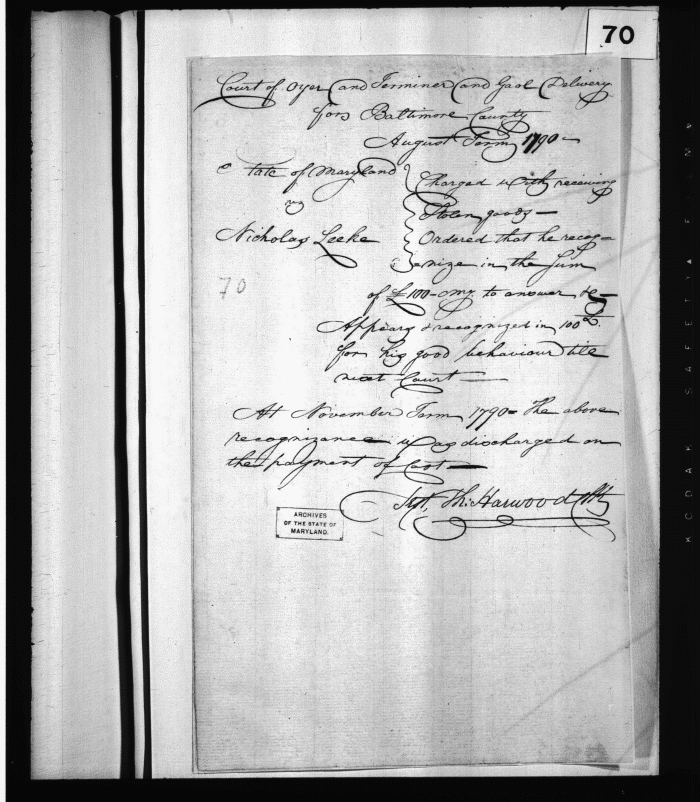 70
Court of Oyer and Terminer and Gaol Delivery
for Baltimore County
August Term 1790
State of Maryland
vs
Nicholas Leeke
Charged with receiving
Stolen goods —
Ordered that he recog=
nize in the Sum
70
of £100-cmy to answer &c —
Appears & recognizes in 100£.
for his good behaviour till
next Court —
At November Term 1790 = The above
recognizance was discharged on
the payment of Cost —
Test, Th: Harwood Clk
ARCHIVES
OF THE STATE OF
MARYLAND.
KODAK SAFETY